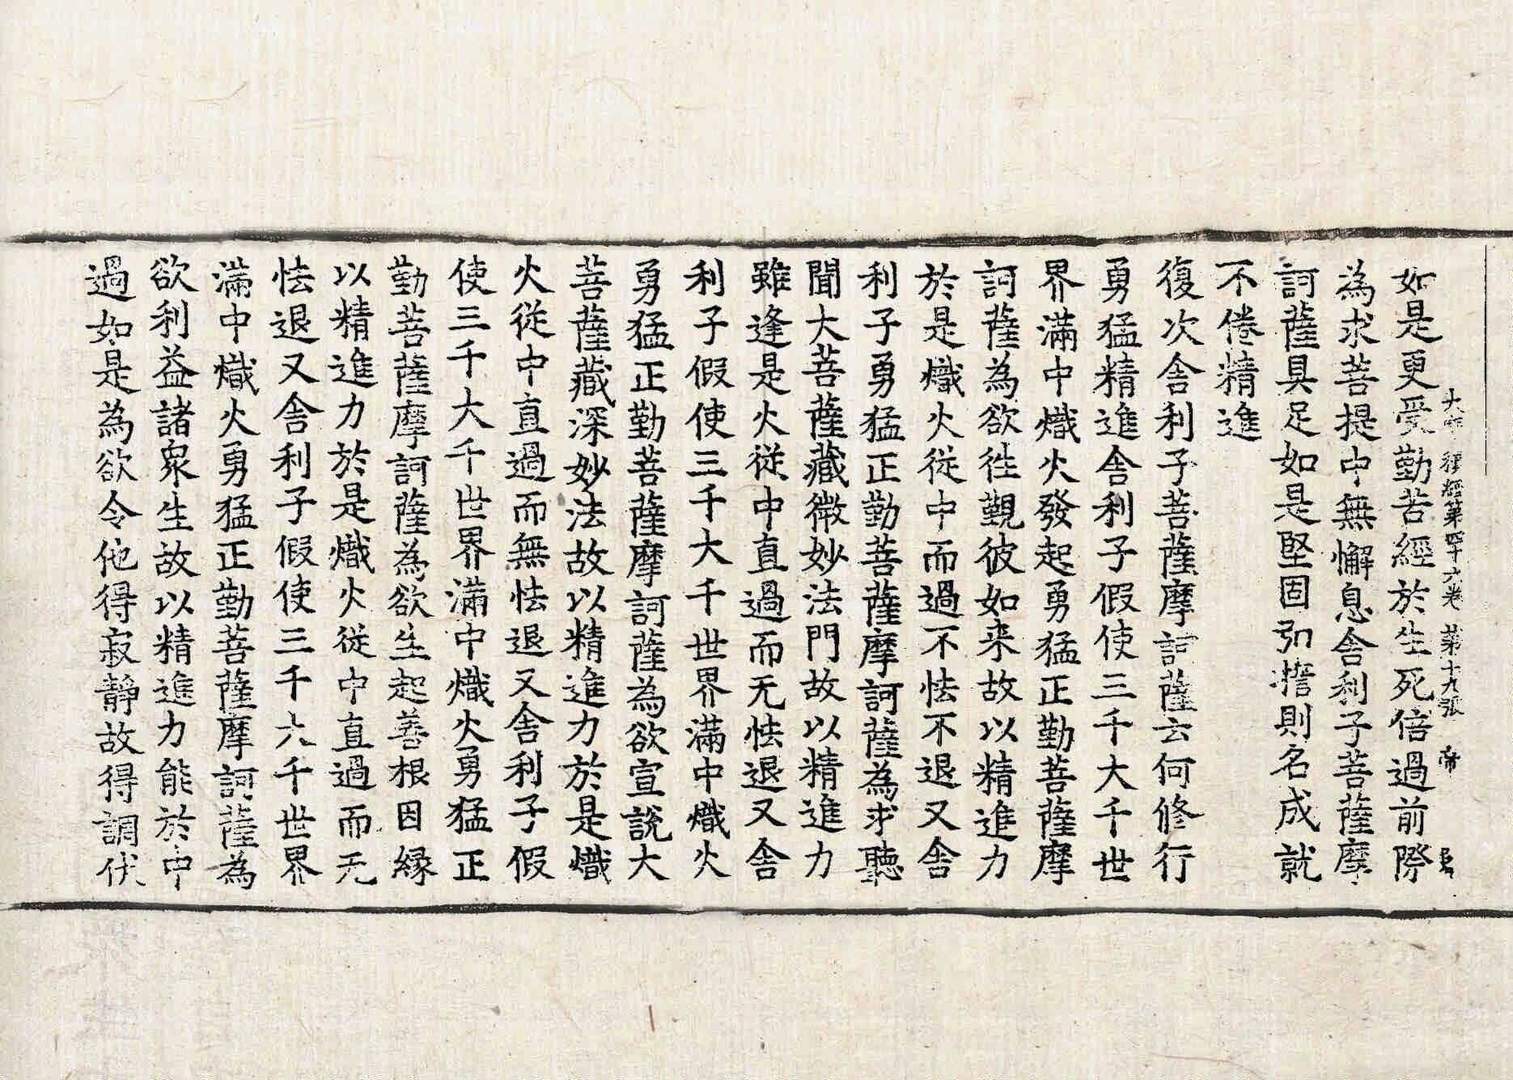 大 積經第四十六卷 第十九張 帝
如是更受勤苦經於生死倍過前際
為求菩提中無懈息舍利子菩薩摩
訶薩具足如是堅固弘擔則名成就
不倦精進
復次舍利子菩薩摩訶薩云何修行
勇猛精進舍利子假使三千大千世
界滿中熾火發起勇猛正勤菩薩摩
訶薩為欲往覲彼如来故以精進力
於是熾火従中而過不怯不退又舍
利子勇猛正勤菩薩摩訶薩為求聽
聞大菩薩藏微妙法門故以精進力
雖逢是火従中直過而无怯退又舍
利子假使三千大千世界滿中熾火
勇猛正勤菩薩摩訶薩為欲宣說大
菩薩藏深妙法故以精進力於是熾
火従中直過而無怯退又舍利子假
使三千大千世界滿中熾火勇猛正
勤菩薩摩訶薩為欲生起善根因緣
以精進力於是熾火従中直過而无
怯退又舍利子假使三千大千世界
滿中熾火勇猛正勤菩薩摩訶薩為
欲利益諸衆生故以精進力能於中
過如是為欲令他得寂靜故得調伏